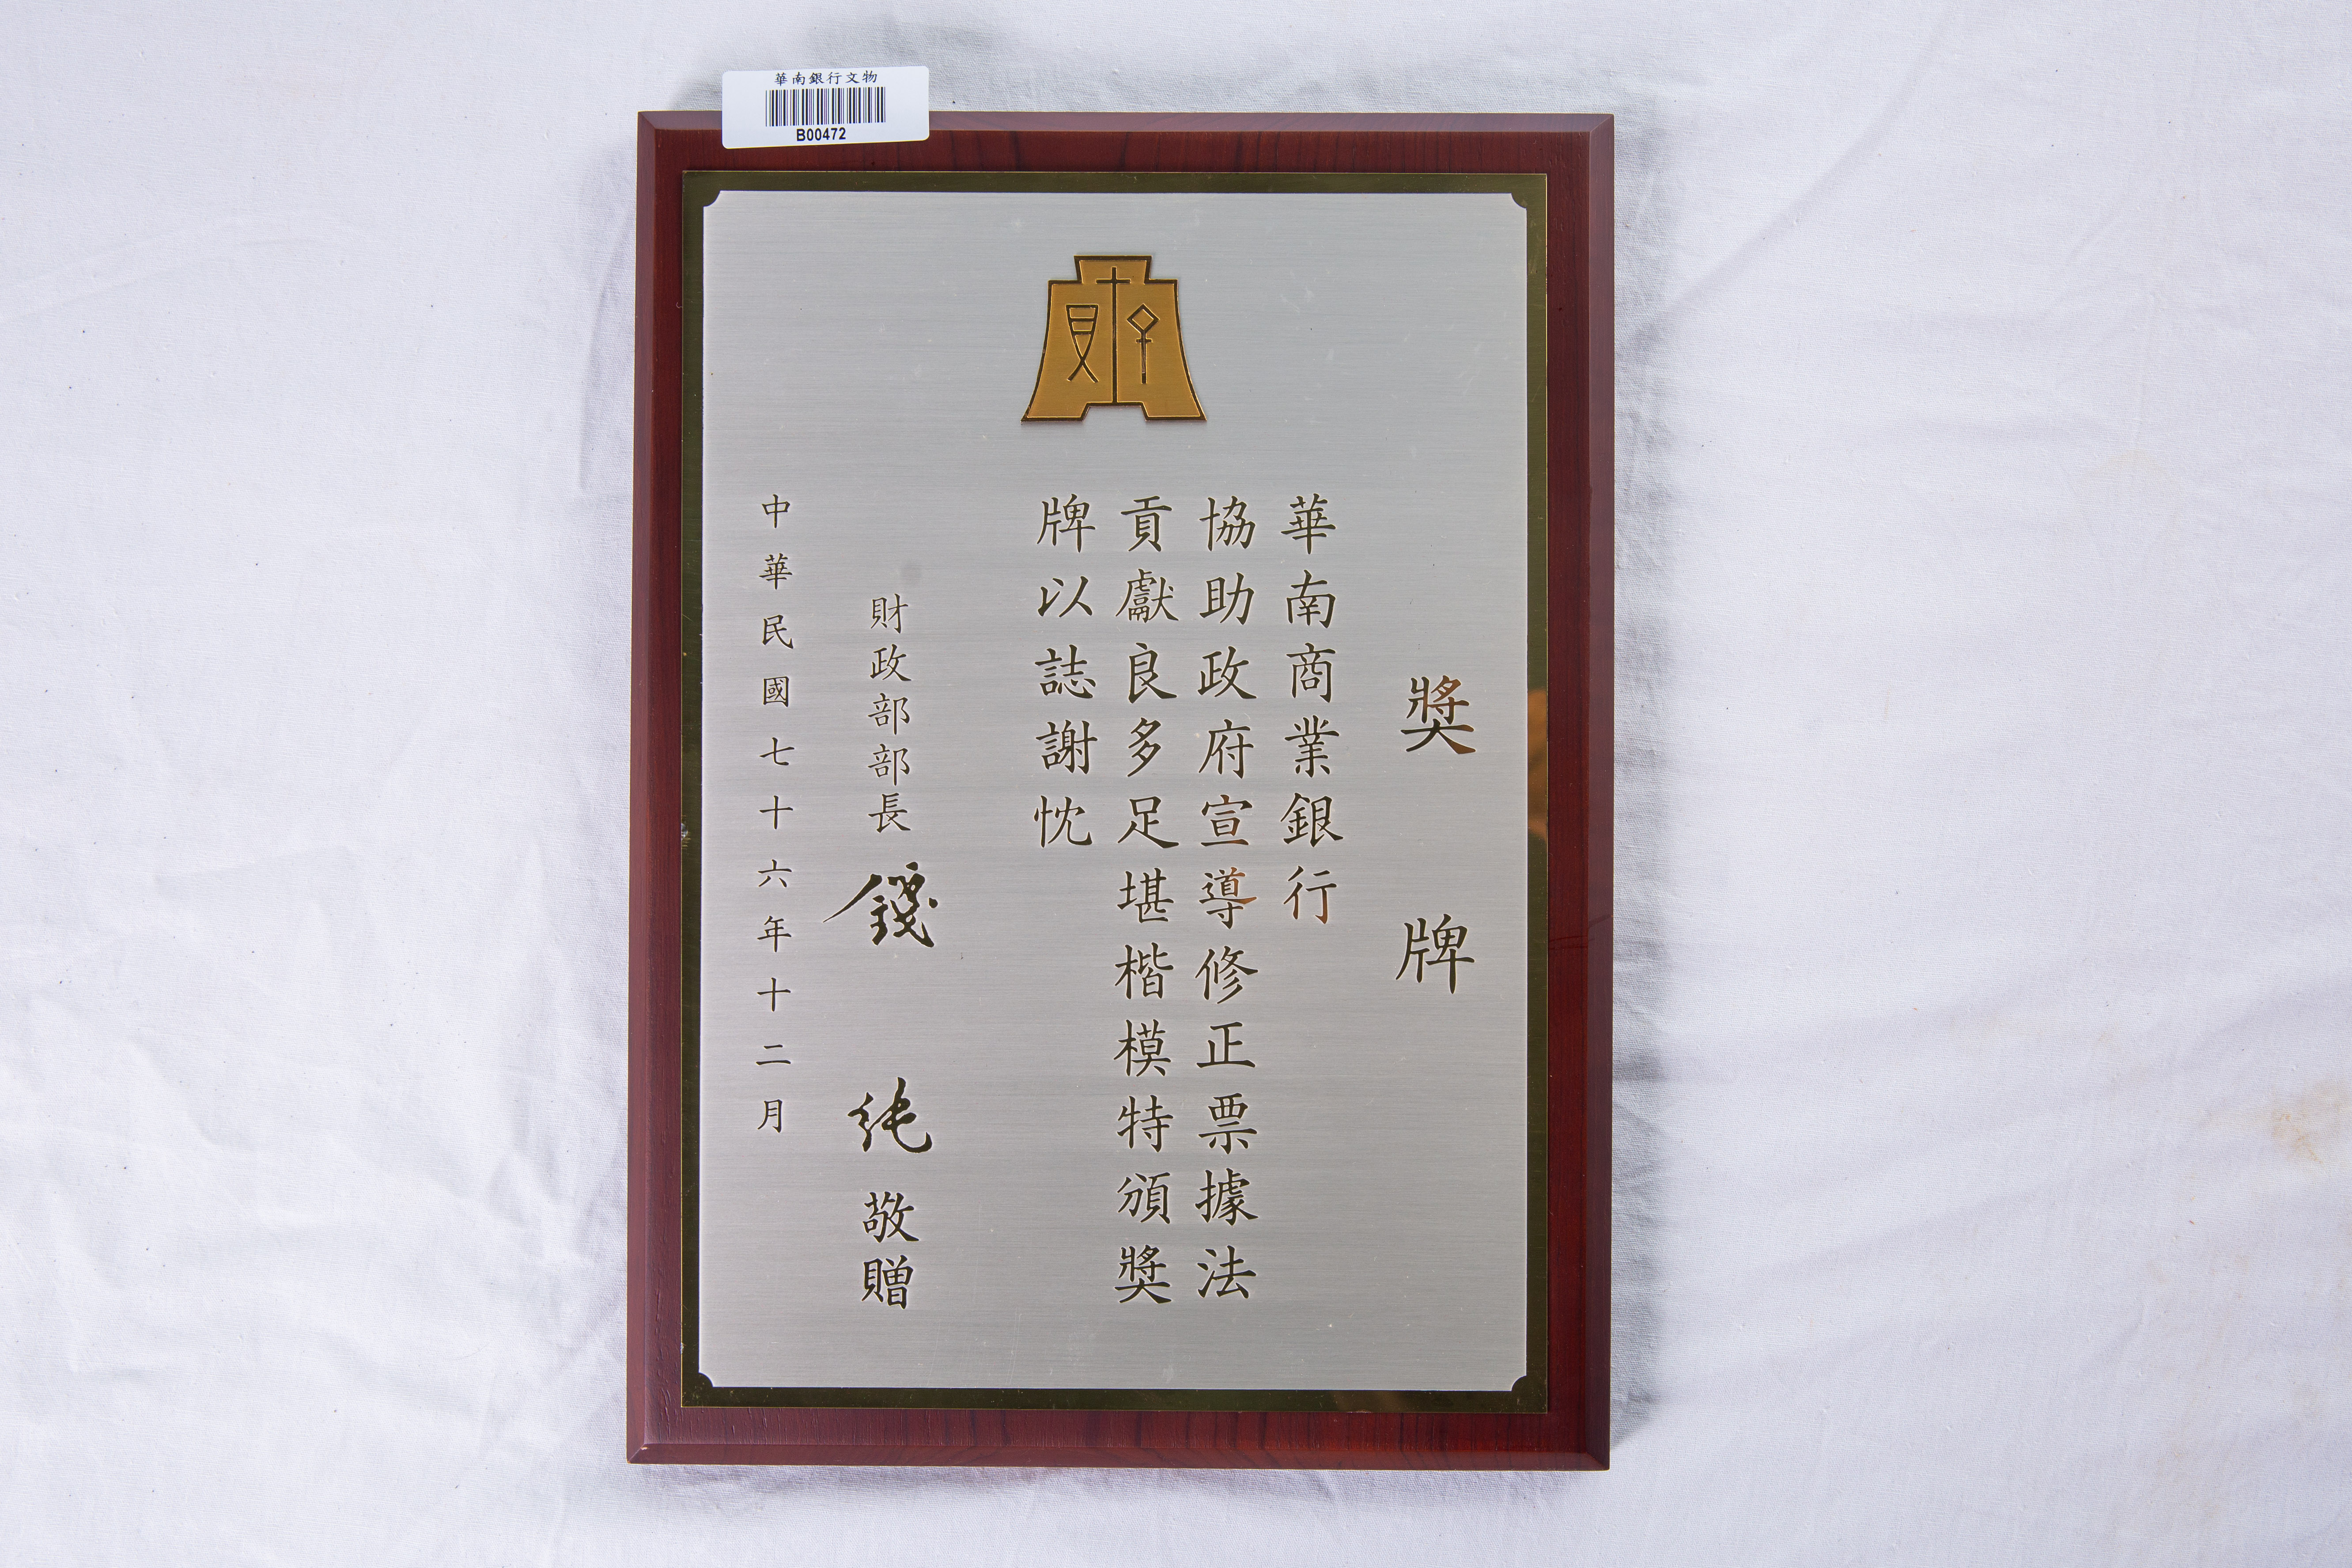 華南銀行文物
B00472
財
獎牌
華南商業銀行
協助政府宣導修正票據法
貢獻良多足堪楷模特頒獎
牌以誌謝忱
財政部部長錢純敬贈
中華民國七十六年十二月